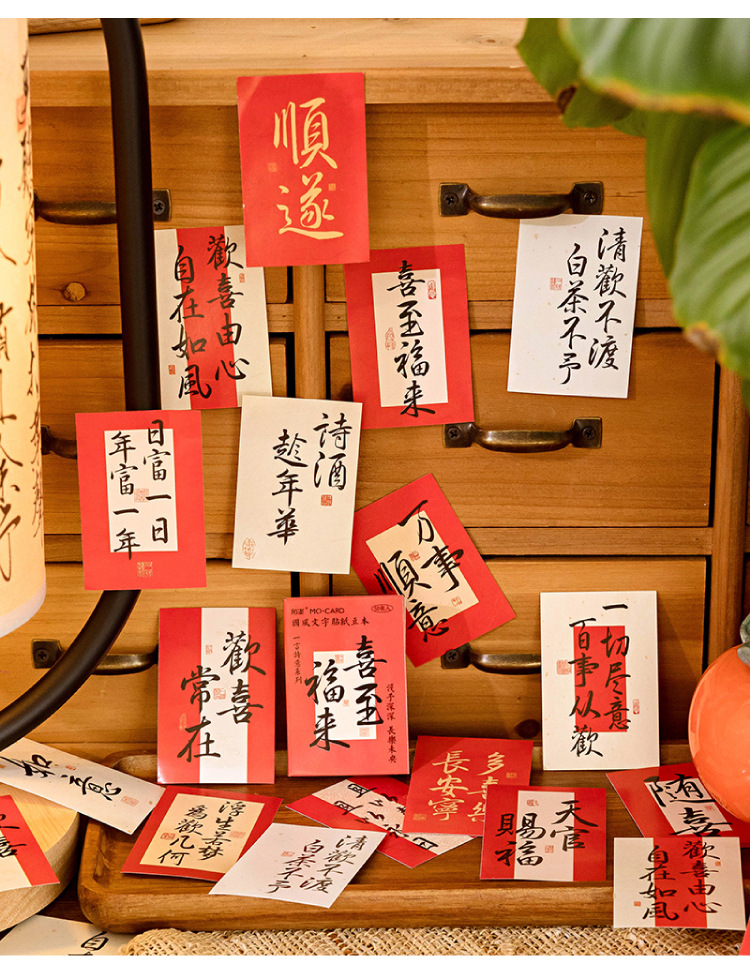 順遂
歡喜由心
自在如風
喜至福来
清歡不渡
白茶不予
日富一日
年富一年
詩酒
趁年華
万事
順意
歡喜
常在
MO·CARD
國風文字貼紙立本
一言詩意系列
喜至
福来
浅予深深 長樂未央
一切尽意
百事从歡
多喜
長安寧
浮生若梦
為歡几何
清歡不渡
白茶不予
天官
賜福
随喜
歡喜由心
自在如風